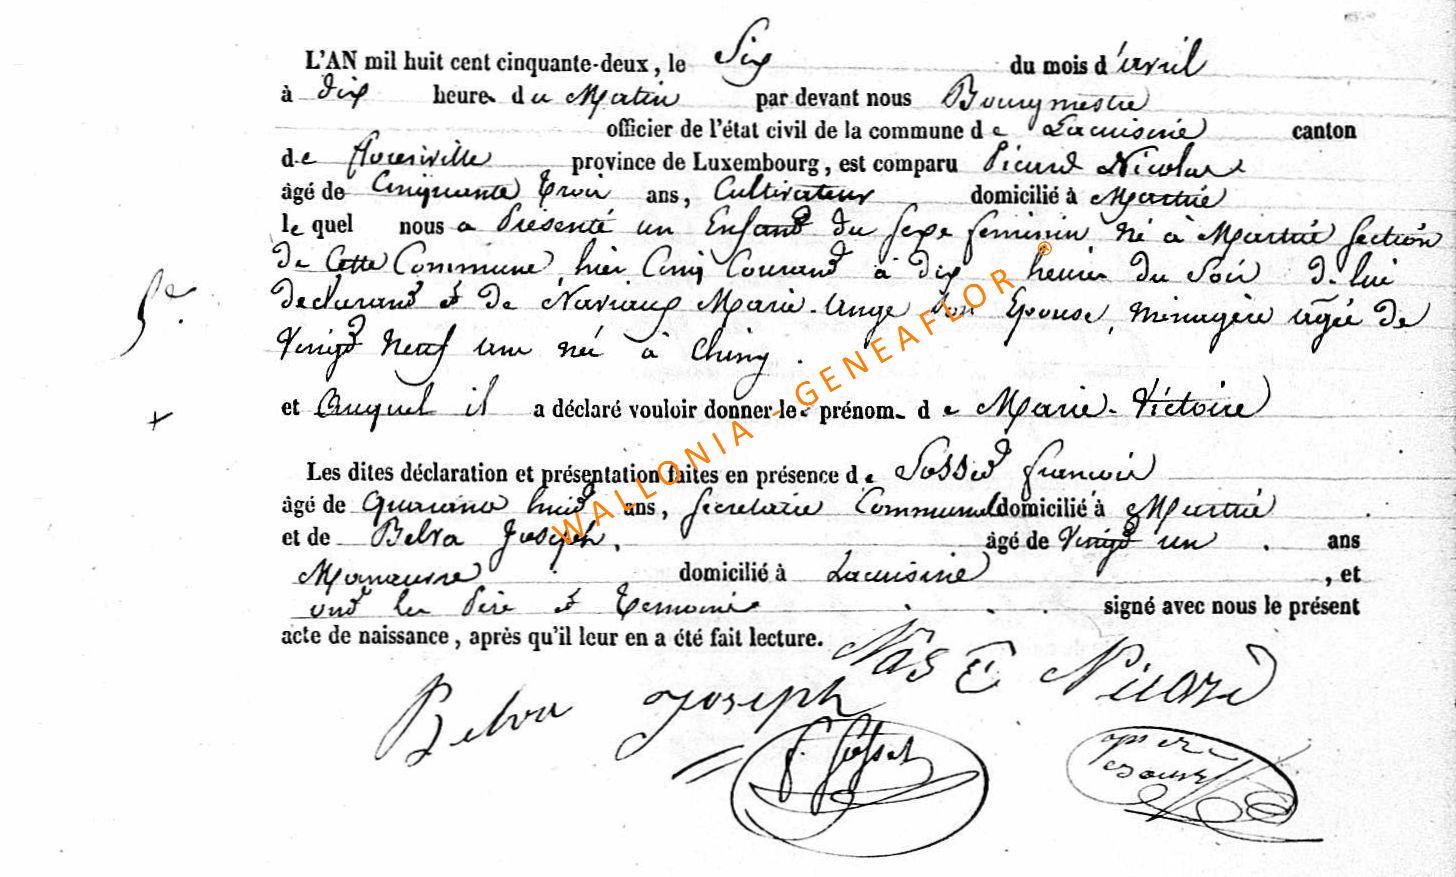 L'AN mil huit cent cinquante-deux, le Six du mois d'avril
à dix heures du Matin par devant nous Bourgmestre
officier de l'état civil de la commune de Lacuisine canton
de Florenville province de Luxembourg, est comparu Picard Nicolas
âgé de Cinquante Trois ans, Cultivateur domicilié à Martué
le quel nous a Présenté un Enfant du sexe feminin né à Martué section
de Cette Commune, hier Cinq Courant à dix heures du Soir de lui
5e.
declarant et de Naviaux Marie-Ange son Epouse, menagère agée de
Vingt Neuf ans née à Chiny.
+
et Auquel il a déclaré vouloir donner les prénom- de Marie-Victoire
Les dites déclaration et présentation faites en présence de Sosset francois
âgé de Quarante huit ans, secretaire Communal domicilié à Martué
et de Belva Joseph, âgé de Vingt un . ans
Manœuvre domicilié à Lacuisine , et
ont les Père et Temoins signé avec nous le présent
acte de naissance, après qu'il leur en a été fait lecture.
Belva Joseph Nas Picard
f. Sosset
WALLONIA - GENEAFLOR ®